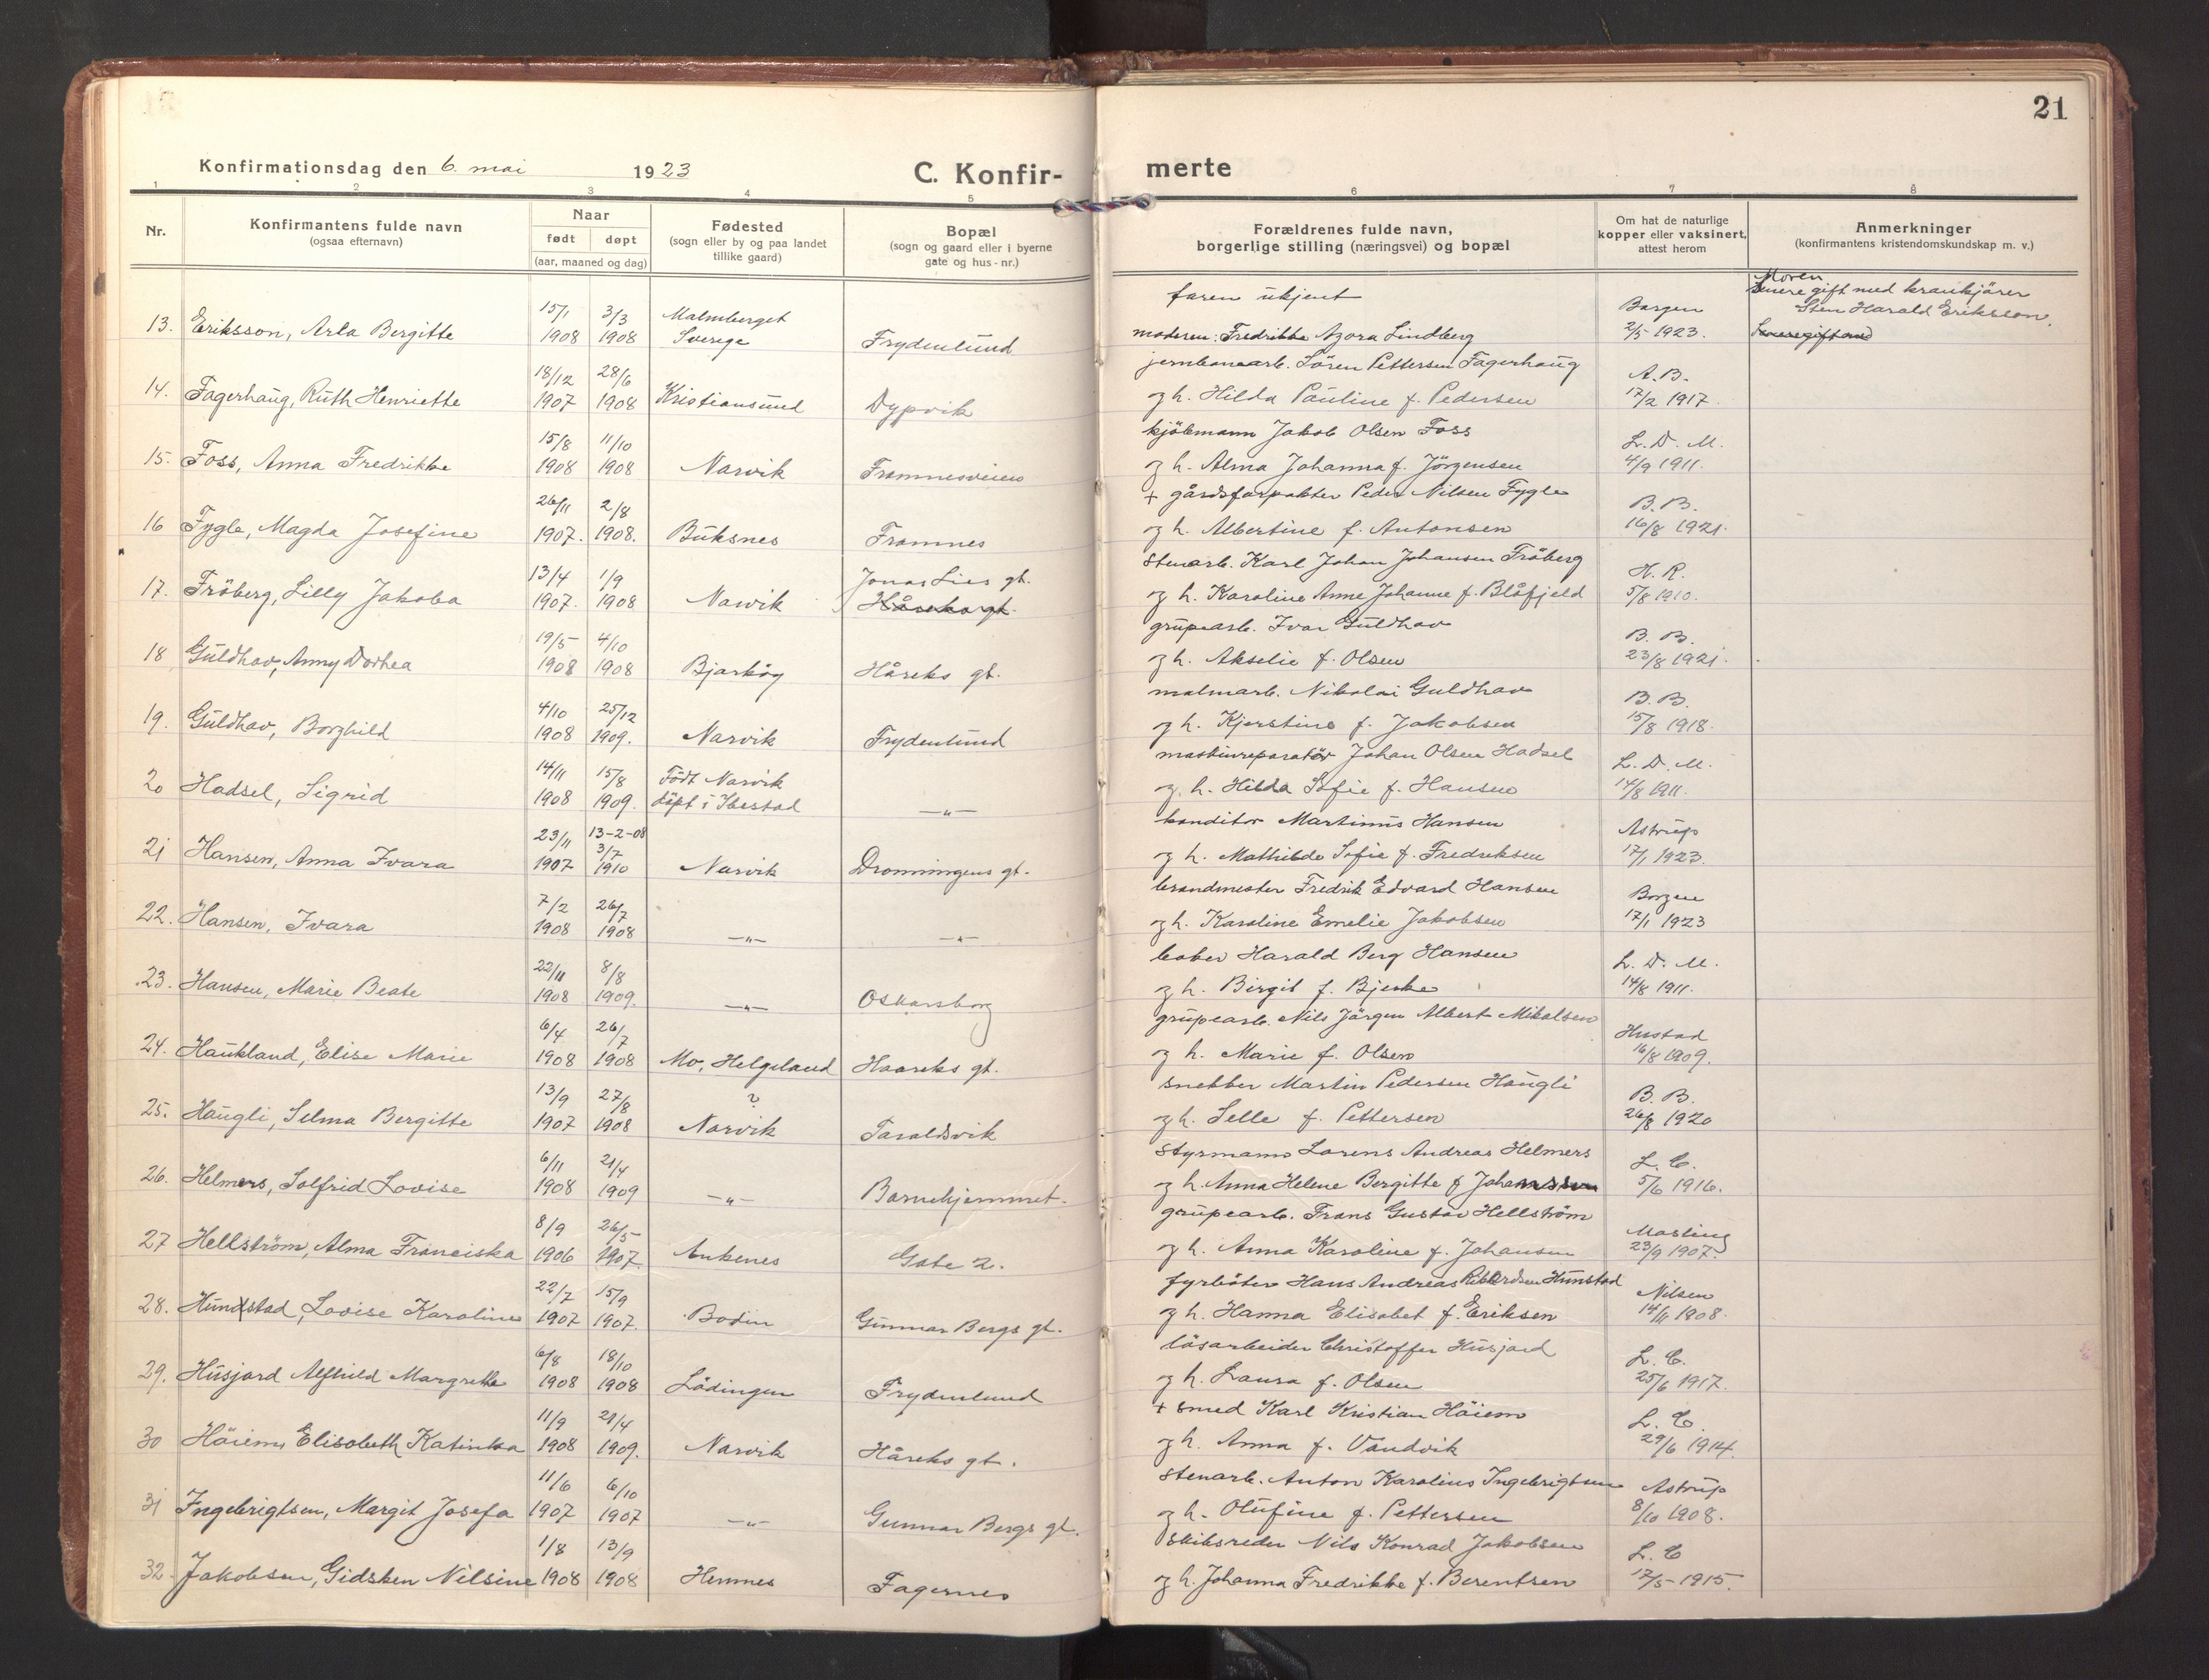 21
Konfirmationsdag den 6. mai 1923
C. Konfirmerte
1 2 3 4 5 6 7 8
Nr.
Konfirmantens fulde navn
(ogsaa efternavn)
Naar
født døpt
(aar, maaned og dag)
Fødested
(sogn eller by og paa landet
tillike gaard)
Bopæl
(sogn og gaard eller i byerne
gate og hus-nr.)
Forældrenes fulde navn,
borgerlige stilling (næringsvei) og bopæl
Om hat de naturlige
kopper eller vaksinert,
attest herom
Anmerkninger
(konfirmantens kristendomskundskap m. v.)
15/1 3/3 Malmberget faren ukjent Borgen Moren
Senere gift med krankjører
13. Eriksson, Arla Bergitte 1908 1908 Sverige Frydenlund moderen: Fredrikke Azora Lindberg 2/5 1923. Sten Harald Eriksson.
18/12 28/6 jernbanearb. Sören Pettersen Fagerhaug A.B.
14. Fagerhaug, Ruth Henriette 1907 1908 Kristiansund Dypvik og h. Hilda Pauline f. Pedersen 17/2 1917.
15/8 11/10 kjöbmann Jakob Olsen Foss L.D.M.
15. Foss, Anna Fredrikke 1908 1908 Narvik Framnesveien og h. Alma Johanna f. Jörgensen 4/9 1911.
26/11 2/8 + gårdsforpakter Peder Nilsen Fygle B.B.
16 Fygle, Magda Josefine 1907. 1908. Buksnes Framnes og h. Albertine f. Antonsen 16/8 1921.
13/4 1/9 Jonas Lies gt. Stenarb. Karl Johan Johansen Fröberg H.R.
17. Fröberg, Lilly Jakoba 1907. 1908 Narvik Håreks gt. og h. Karoline Anne Johanne f. Blåfjeld 5/8 1910.
19/5 4/10 grupearb. Ivar Guldhav B.B.
18 Guldhav, Anny Dorhea 1908 1908 Bjarköy Håreks gt. og h. Akselie f. Olsen 23/8 1921.
4/10 25/12 malmarb. Nikolai Guldhav B.B.
19. Guldhav, Borghild 1908 1909. Narvik Frydenlund og h. Kjerstine f. Jakobsen 15/8 1918.
14/11 15/8 Födt Narvik maskinreparatör Johan Olsen Hadsel L.D.M.
20 Hadsel, Sigrid 1908 1909. döpt i Ibestad —"— og h. Hilda Sofie f. Hansen 14/8 1911.
23/11 13-2-08 3/7 konditor Martinus Hansen Astrup
21 Hansen, Anna Ivara 1907 1910 Narvik Dronningens gt. og h. Mathilde Sofie f. Fredreksen 17/1 1923.
7/2 26/7 brandmester Fredrik Edvard Hansen Borgen
22. Hansen, Ivara 1908 1908 —"— —"— og h. Karoline Emelie Jakobsen 17/1 1923
22/11 8/8 Harald Berg Hansen L.D.M.
23. Hansen, Marie Beate 1908 1909. —"— Oskarsborg og h. Birgit f. Bjerke 14/8 1911.
6/4 26/7 grupearb. Nils Jörgen Albert Mikalsen Hustad
24. Haukland, Elise Marie 1908 1908 Mo, Helgeland Haareks gt. og h. Marie f. Olsen 16/8 1909.
13/9 27/8 ? snekker Martin Pedersen Haugli B.B.
25. Haugli, Selma Bergitte 1907 1908 Narvik Taraldsvik og h. Selle f. Pettersen 26/8 1920
6/11 21/4 Styrmann Lorens Andreas Helmers L.C.
26. Helmers, Solfrid Lovise 1908 1909 —"— Barnehjemmet. og h. Anna Helene Bergitte f Johanssen 5/6 1916.
8/9 26/5 grupearb. Frans Gustav Hellström Mosling
27 Hellström, Alma Franciska 1906 1907. Ankenes Gate 2. og h. Anna Karoline f. Johansen 23/9 1907.
22/7 15/9 fyrböter Hans Andreas Rikardsen Hunstad Nilsen
28. Hunstad, Lovise Karoline 1907 1907. Bodin Gunnar Bergs gt. og h. Hanna Elisabet f. Eriksen 14/11 1908.
6/8 18/10 lösarbeider Christoffer Husjord L.C.
29. Husjord Alfhild Margrethe 1908 1908 Lödingen Frydenlund og h. Laura f. Olsen 25/6 1917.
11/9 21/4 + smed Karl Kristian Höiem L.C.
30 Höiem, Elisabeth Katinka 1908 1909. Narvik Håreks gt. og h. Anna f. Vandvik 29/6 1914.
11/6 6/10 Stenarb. Anton Karolius Ingebrigtsen Astrup
31 Ingebrigtsen, Margit Josefa 1907 1907 —"— Gunnar Bergs gt. og h. Olufine f. Pettersen 8/10 1908.
1/8 13/9 Skibsreder Nils Konrad Jakobsen L.C
32. Jakobsen, Gidsken Nilsine 1908 1908 Hemnes Fagernes og h. Johanna Fredrikke f. Berentsen 12/5 1915.